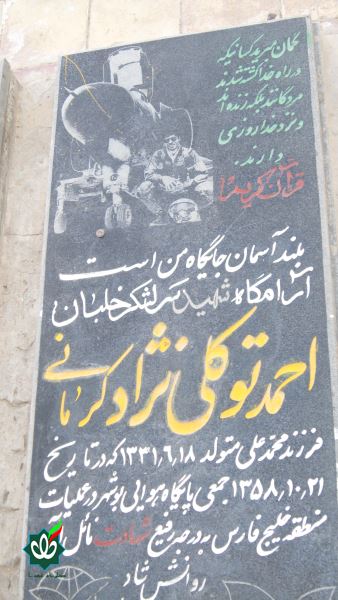 گمان مبرید کسانیکه
در راه خدا کشته شدند
مردگانند بلکه زنده اند
و نزد خدا روزی
دارند.
قرآن کریم
بلند آسمان جایگاه من است
آرامگاه شهید سرلشکر خلبان
احمد توکلی نژاد کرمانی
فرزند محمد علی متولد ۱۳۳۱،۶،۱۸ که در تاریخ
۱۳۵۸،۱۰،۲۱ جمعی پایگاه هوایی بوشهر در عملیات
منطقه خلیج فارس به درجه رفیع شهادت نائل
روانش شاد